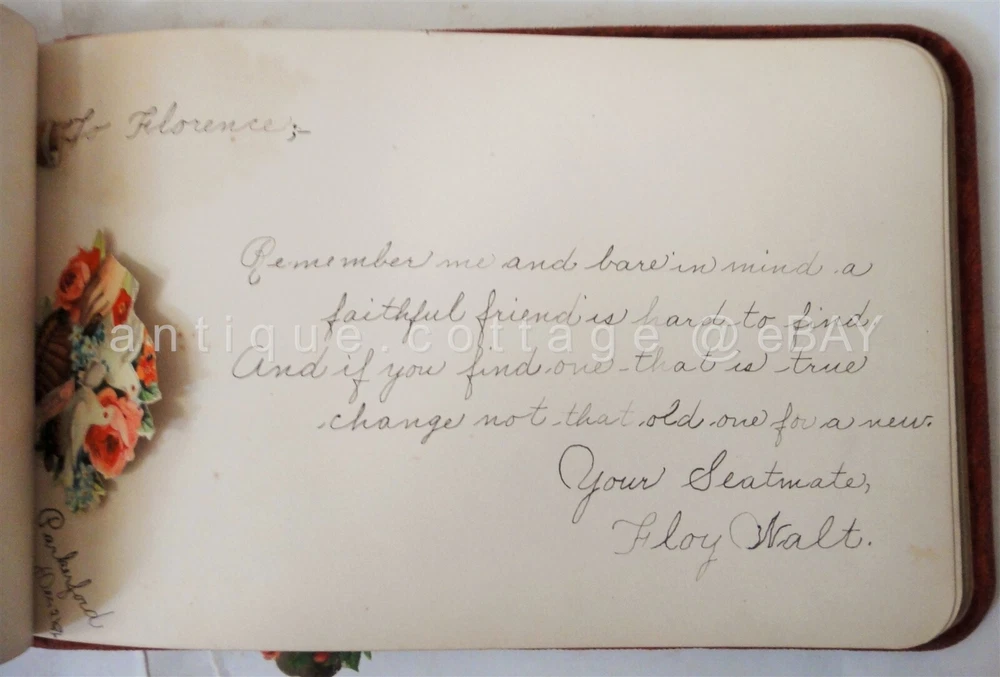 To Florence;-
Remember me and bare in mind a
faithful friend is hard to find
And if you find one that is true
change not that old one for a new.
Your Seatmate,
Floy Walt.
Parkerford
antique.cottage @ eBAY